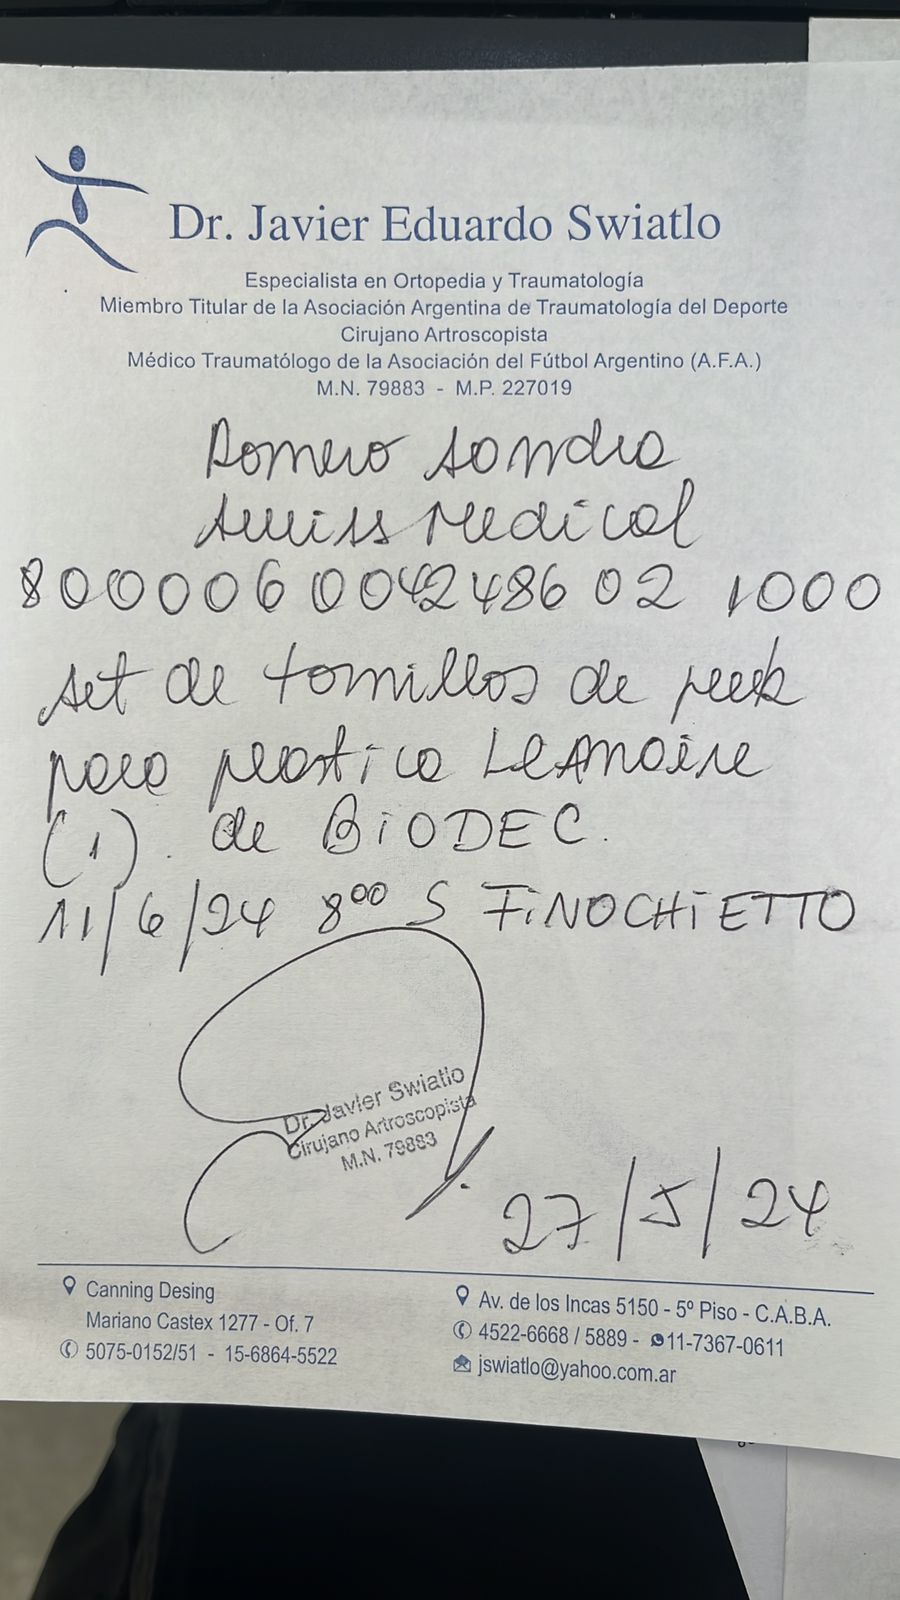 Dr. Javier Eduardo Swiatlo
Especialista en Ortopedia y Traumatología
Miembro Titular de la Asociación Argentina de Traumatología del Deporte
Cirujano Artroscopista
Médico Traumatólogo de la Asociación del Fútbol Argentino (A.F.A.)
M.N. 79883 - M.P. 227019
Romero Sandra
Swiss Medical
800006 0042486 02 1000
set de tornillos de peek
para plastica LEAMoire
(1). de BiODEC.
11/6/24 8⁰⁰ S FiNOCHiETTO
Dr. Javier Swiatlo
Cirujano Artroscopista
M.N. 79883
27/5/24
Canning Desing
Mariano Castex 1277 - Of. 7
5075-0152/51 - 15-6864-5522
Av. de los Incas 5150 - 5º Piso - C.A.B.A.
4522-6668 / 5889 - 11-7367-0611
jswiatlo@yahoo.com.ar